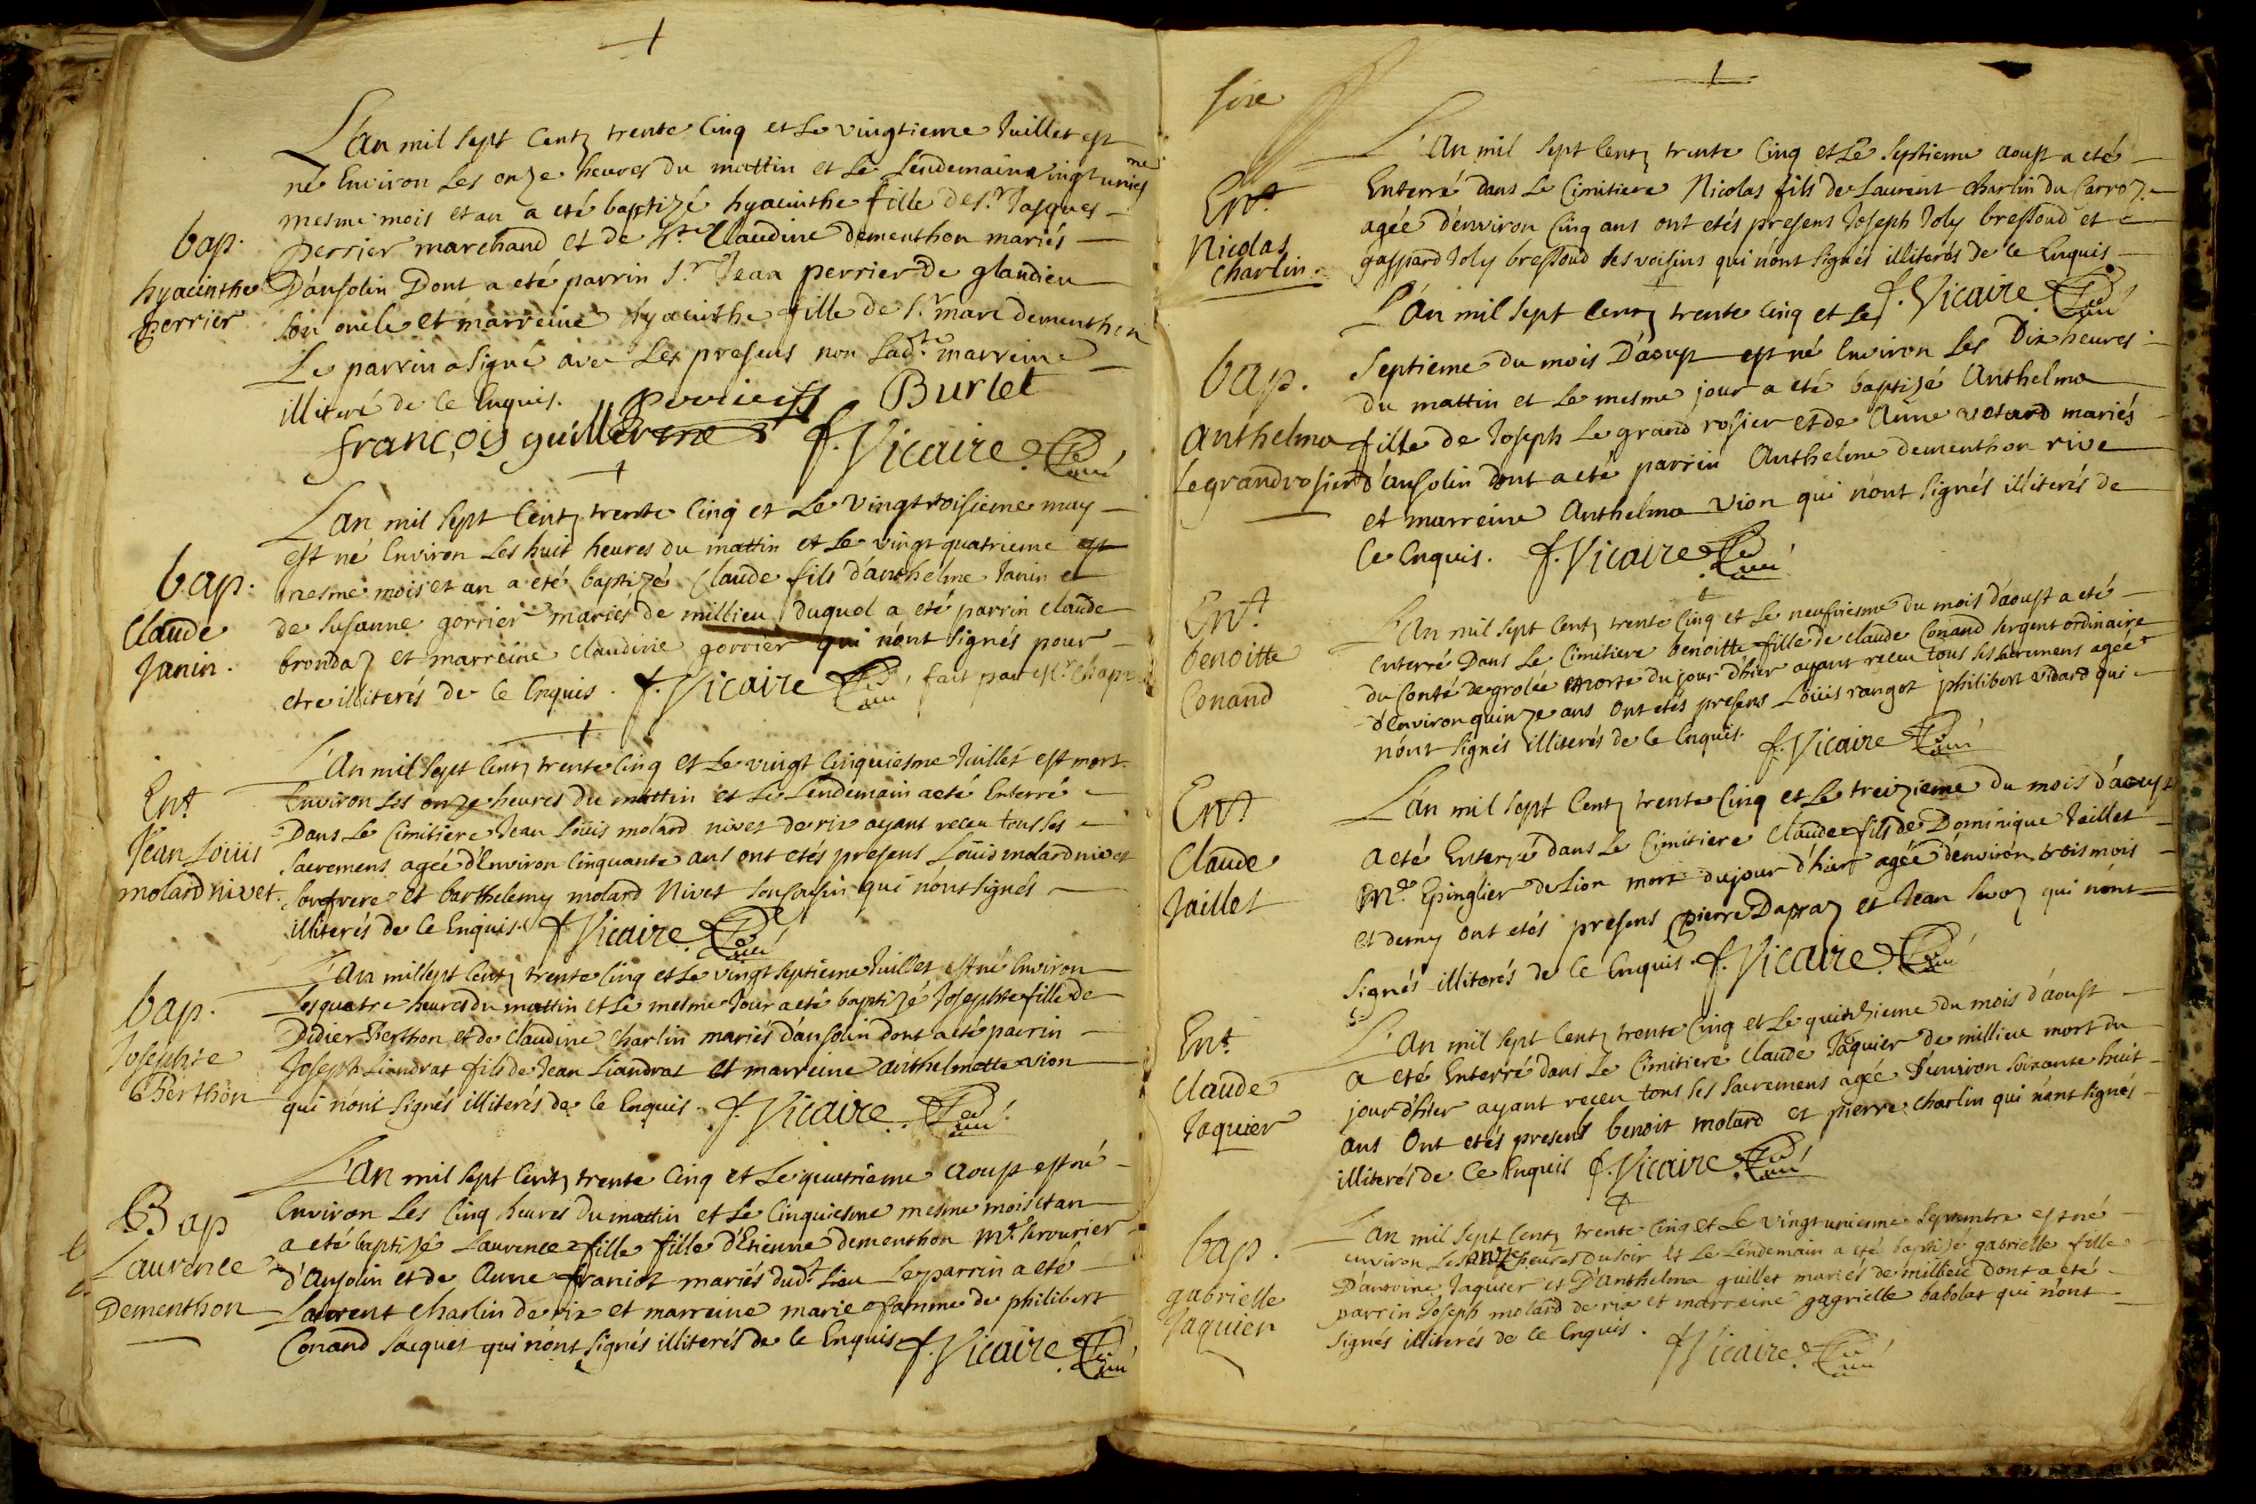 L'an mil sept Centz trente Cinq et Le vingtieme Juillet est
né Environ Les onze heures du mattin et Le Lendemain vingt unies me
mesme mois et an a eté baptizé hyacinthe fille de Sr. Jasques
bap. perrier marchand et de Claudine dementhon mariés
hyacinthe D'ansolin Dont a eté parrin Sr. Jean perrier de glandieu
perrier Son oncle et marreine hyacinthe fille de Sr. marc dementhon
Le parrin a signé avec Les presens non Ladte. marreine
illiteré de Ce Enquis. perrier Burlet
françois guillerme f. Vicaire Curé
L'an mil sept Centz trente Cinq et Le vingtroisieme may
est né Environ Les huit heures du mattin et Le vingt quatrieme
bap. mesme mois et an a eté baptizé Claude fils d'anthelme Janin et
Claude de Susanne gorrier mariés de millieu duquel a eté parrin claude
Janin. brondaz et marreine claudine gorrier qui n'ont signés pour
etre illiterés de Ce Enquis. f. Vicaire Curé fait par
L'an mil sept Centz trente Cinq et Le vingt Cinquiesme Juillet est mort
Ent. Environ Les onze heures du mattin et Le Lendemain a eté Enterré
Jean Loüis Dans Le Cimitiere Jean Loüis molard nivet de rix ayant receu tous ses
molard nivet. Sacremens agée d'Environ Cinquante ans ont etés presens Loüis molard nivet
son frere et barthelemy molard Nivet son Cousin qui n'ont signés
illiterés de Ce Enquis. f. Vicaire Curé
L'an mil sept Centz trente Cinq et Le vingt septieme Juillet est né Environ
bap. Les quatre heures du mattin et Le mesme Jour a eté baptizé Josephte fille de
Josephte Didier Berthon et de Claudine Charlin mariés d'ansolin dont a eté parrin
Berthon Joseph Liandrat fils de Jean Liandrat et marreine anthelmette vion
qui n'ont signés illiterés de Ce Enquis. f. Vicaire Curé
L'an mil sept Centz trente Cinq et Le quatrieme aoust est né
Bap Environ Les Cinq heures du mattin et Le Cinquiesme mesme mois et an
Laurence a eté baptizé Laurence fille fille d'Etienne dementhon Me. Serrurier
Dementhon d'Ansolin et de Anne franiot mariés dudt. Lieu Le parrin a eté
Laurent Charlin de rix et marreine marie famme de philibert
Conand Jacquet qui n'ont signés illiterés de Ce Enquis f. Vicaire Curé
L'An mil sept Centz trente Cinq et Le septieme aoust a eté
Ent. Enterré Dans Le Cimitiere Nicolas fils de Laurent Charlin du Carroz
Nicolas agée d'environ Cinq ans ont etés presens Joseph Joly bressoud et
Charlin. gaspard Joly bressoud ses voisins qui n'ont signés illiterés de Ce Enquis
f. Vicaire Curé
L'an mil sept Centz trente Cinq et Le
Septieme du mois D'aoust est né Environ Les Dix heures
bap. du mattin et Le mesme jour a eté baptizé Anthelma
anthelma fille de Joseph Le grand rosier et de Anne votard mariés
Le grand rosier d'ansolin dont a eté parrin Anthelme dementhon rive
et marreine Anthelma Vion qui n'ont signés illiterés de
Ce Enquis. f. Vicaire Curé
L'An mil sept Centz trente Cinq et Le neufviesme du mois d'aoust a eté
Ent. Enterré Dans Le Cimitiere benoitte fille de claude Conand sergent ordinaire
benoitte du Conté de grolée morte du jour d'hier ayant receu tous ses sacremens agée
Conand d'Environ quinze ans ont etés presens Loüis rangot philibert vidard qui
n'ont signés illiterés de Ce Enquis. f. Vicaire Curé
Ent L'an mil sept Centz trente Cinq et Le treizieme du mois d'aoust
Claude a eté Enterré dans Le Cimitiere Claude fils de Dominique Jaillet
Jaillet Me. Epinglier de Lion mort du jour d'hier agée d'environ trois mois
et demy ont etés presens pierre Dapraz et Jean Sevoz qui n'ont
signés illiterés de Ce Enquis. f. Vicaire Curé
Ent. L'an mil sept Centz trente Cinq et Le quinzieme du mois d'aoust
Claude a eté Enterré dans Le Cimitiere Claude Jaquier de millieu mort du
Jaquier jour d'hier ayant receu tous ses sacremens agée d'environ soixante huit
ans Ont etés presens benoit molard et pierre Charlin qui n'ont signés
illiterés de Ce Enquis f. Vicaire Curé
L'an mil sept Centz trente Cinq et Le vingt unienne Septembre est né
bap. environ Les onze heures du soir et Le Lendemain a eté baptizé gabrielle fille
gabrielle D'antoine Jaquier et D'Anthelma guillet mariés de millieu dont a eté
Jaquier parrin Joseph molard de rix et marreine gagrielle babolat qui n'ont
signés illiterés de Ce Enquis. f. Vicaire Curé